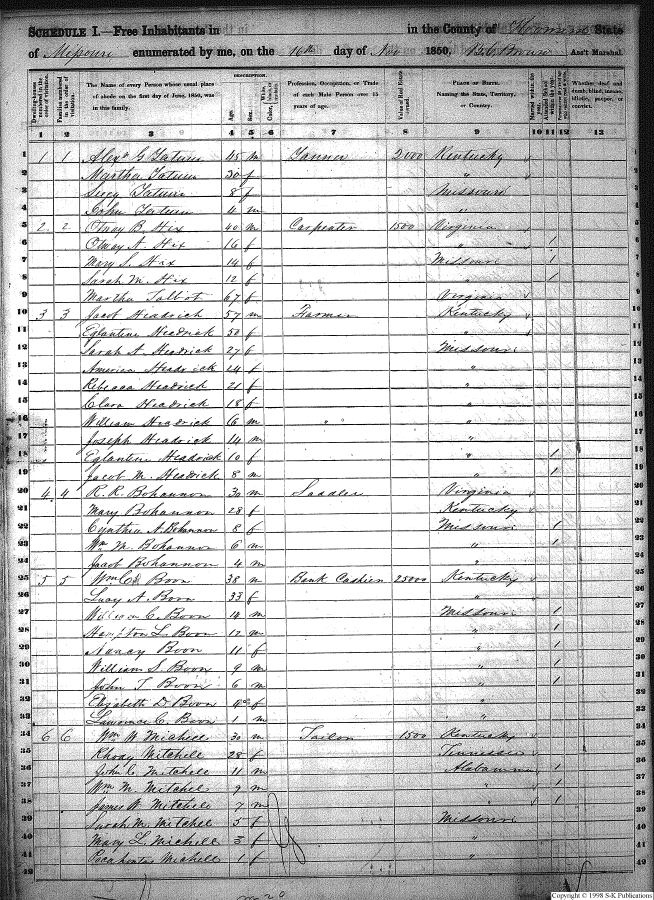 SCHEDULE I.—Free Inhabitants in in the County of State
of Missouri enumerated by me, on the 16th day of Nov 1850. Ass't Marshal.
DESCRIPTION.
Dwelling-houses numbered in the order of visitation.
Families numbered in the order of visitation.
The Name of every Person whose usual place of abode on the first day of June, 1850, was in this family.
Age.
Sex.
Color,
Profession, Occupation, or Trade of each Male Person over 15 years of age.
Value of Real Estate owned.
PLACE OF BIRTH. Naming the State, Territory, or Country.
Married within the year.
Whether deaf and dumb, blind, insane, idiotic, pauper, or convict.
1 2 3 4 5 6 7 8 9 10 11 12 13
1 1 1 Alexr G Tatum 45 m Tanner 2000 Kentucky 1
2 Martha Tatum 30 f " 2
3 Tatum 8 f Missouri 3
4 John Tatum 4 m " 4
5 2 2 Otway B. Hix 40 m Carpenter 1500 Virginia 5
6 Otway A. Hix 16 f " 1 6
7 Mary S. Hix 14 f Missouri 1 7
8 Sarah M. Hix 12 f " 1 8
9 Martha Talbot 67 f Virginia 9
10 3 3 Jacob Headrick 57 m Farmer Kentucky 10
11 Eglantine Headrick 50 f " 11
12 Sarah A. Headrick 27 f Missouri 12
13 America Headrick 24 f " 13
14 Rebecca Headrick 21 f " 14
15 Clara Headrick 18 f " 15
16 William Headrick 16 m " " " 16
17 Joseph Headrick 14 m " 17
18 Eglantine Headrick 10 f " 1 18
19 Jacob M. Headrick 8 m " 1 19
20 4 4 R. R. Bohannon 30 m Saddler Virginia 20
21 Mary Bohannon 28 f Kentucky 21
22 Cynthia A. Bohannon 8 f Missouri 1 22
23 Wm M. Bohannon 6 m " 1 23
24 Jacob Bohannon 4 m " 24
25 5 5 Wm C. Boon 38 m Bank Cashier 25000 Kentucky 25
26 Lucy A. Boon 33 f " 26
27 William C. Boon 14 m Missouri 1 27
28 Hampton L. Boon 12 m " 1 28
29 Nancy Boon 11 f " 1 29
30 William S. Boon 9 m " 1 30
31 John T. Boon 6 m " 1 31
32 Elizabeth D. Boon 4 f " 32
33 Lawrence C. Boon 1 m " 33
34 6 6 Wm W. Michell 30 m Tailor 1500 Kentucky 34
35 Rhody Mitchell 28 f Tennessee 35
36 John C. Mitchell 11 m Alabamma 1 36
37 Wm M. Mitchell 9 m " 1 37
38 James W. Mitchell 7 m " 1 38
39 Sarah M. Mitchel 5 f Missouri 39
40 Mary L. Michell 3 f " 40
41 Pocahontas Michell 1 f " 41
42 42
Copyright © 1998 S-K Publications